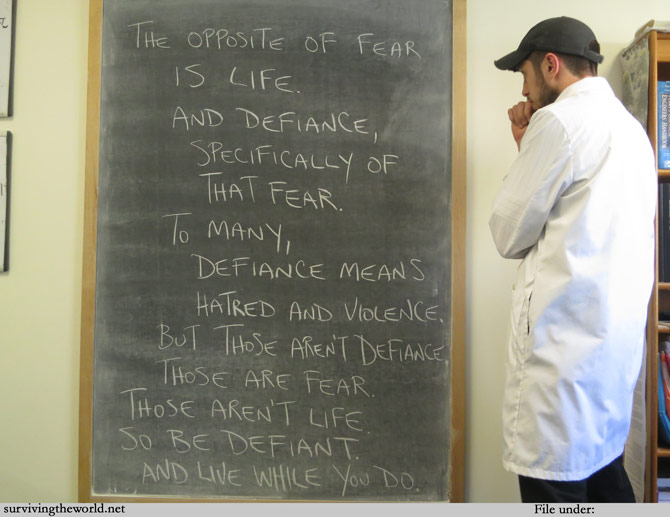 THE OPPOSITE OF FEAR
IS LIFE.
AND DEFIANCE,
SPECIFICALLY OF
THAT FEAR.
TO MANY,
DEFIANCE MEANS
HATRED AND VIOLENCE.
BUT THOSE AREN'T DEFIANCE
THOSE ARE FEAR.
THOSE AREN'T LIFE.
SO BE DEFIANT.
AND LIVE WHILE YOU DO.
survivingtheworld.net
File under: